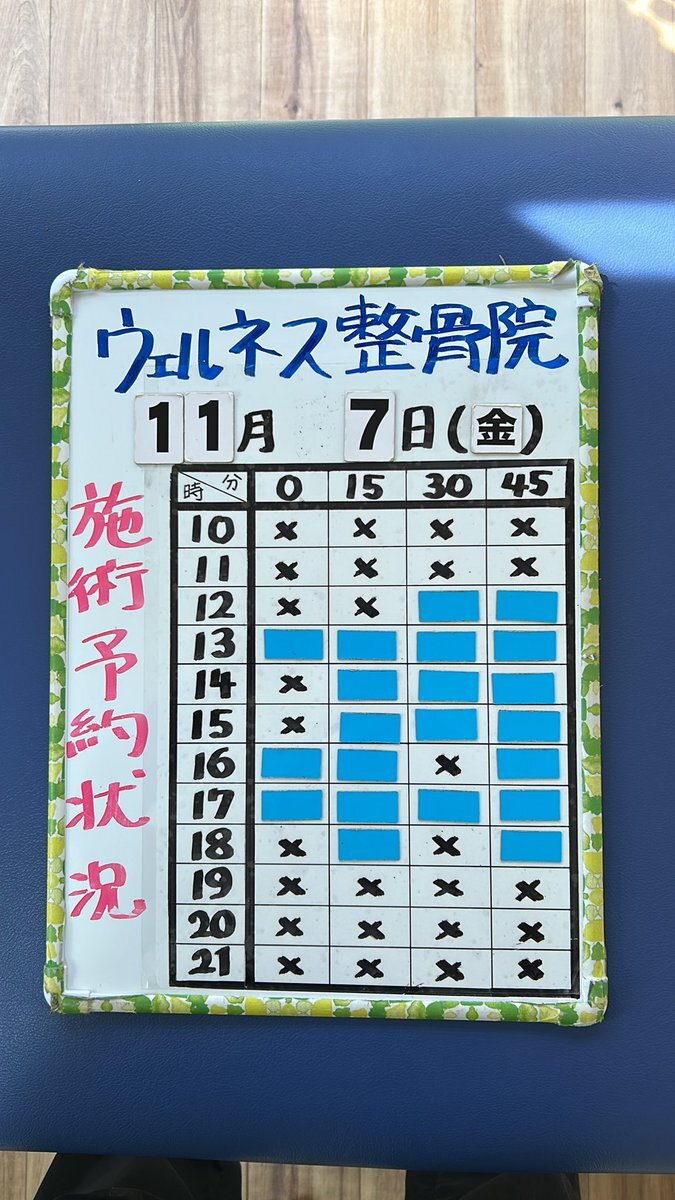 ウェルネス整骨院
11月 7日(金)
施術予約状況
時 分 0 15 30 45
10 × × × ×
11 × × × ×
12 × ×
13
14 ×
15 ×
16 ×
17
18 × ×
19 × × × ×
20 × × × ×
21 × × × ×